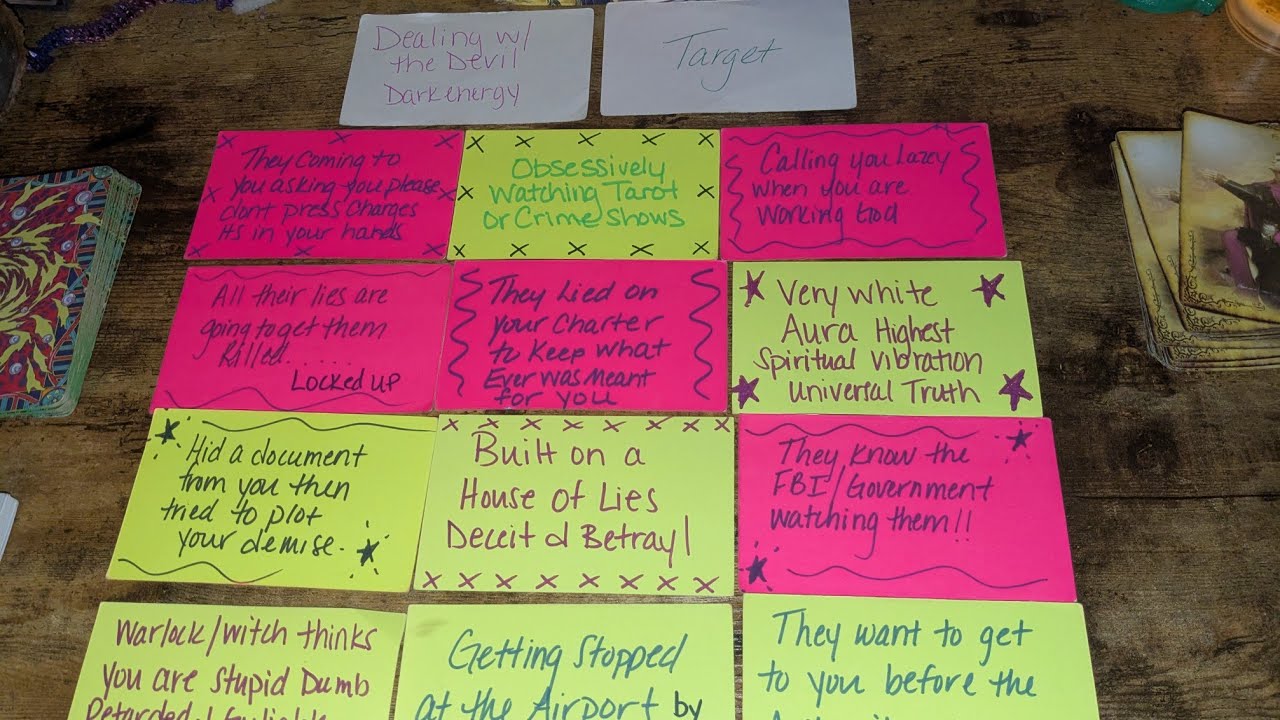 Dealing w/
the Devil
Dark energy
Target
They coming to
you asking you please
dont press charges
its in your hands
Obsessively
Watching Tarot
or Crime Shows
Calling you Lazey
when you are
working God
All their lies are
going to get them
Killed......
Locked up
They Lied on
your Charter
to Keep what
Ever was meant
for you
Very white
Aura Highest
Spiritual vibration
Universal Truth
Hid a document
from you then
tried to plot
your demise.
Built on a
House of Lies
Deceit & Betrayl
They know the
FBI/Government
watching them!!
Warlock/witch thinks
you are stupid Dumb
Retarded &
Getting Stopped
at the Airport by
They want to get
to you before the